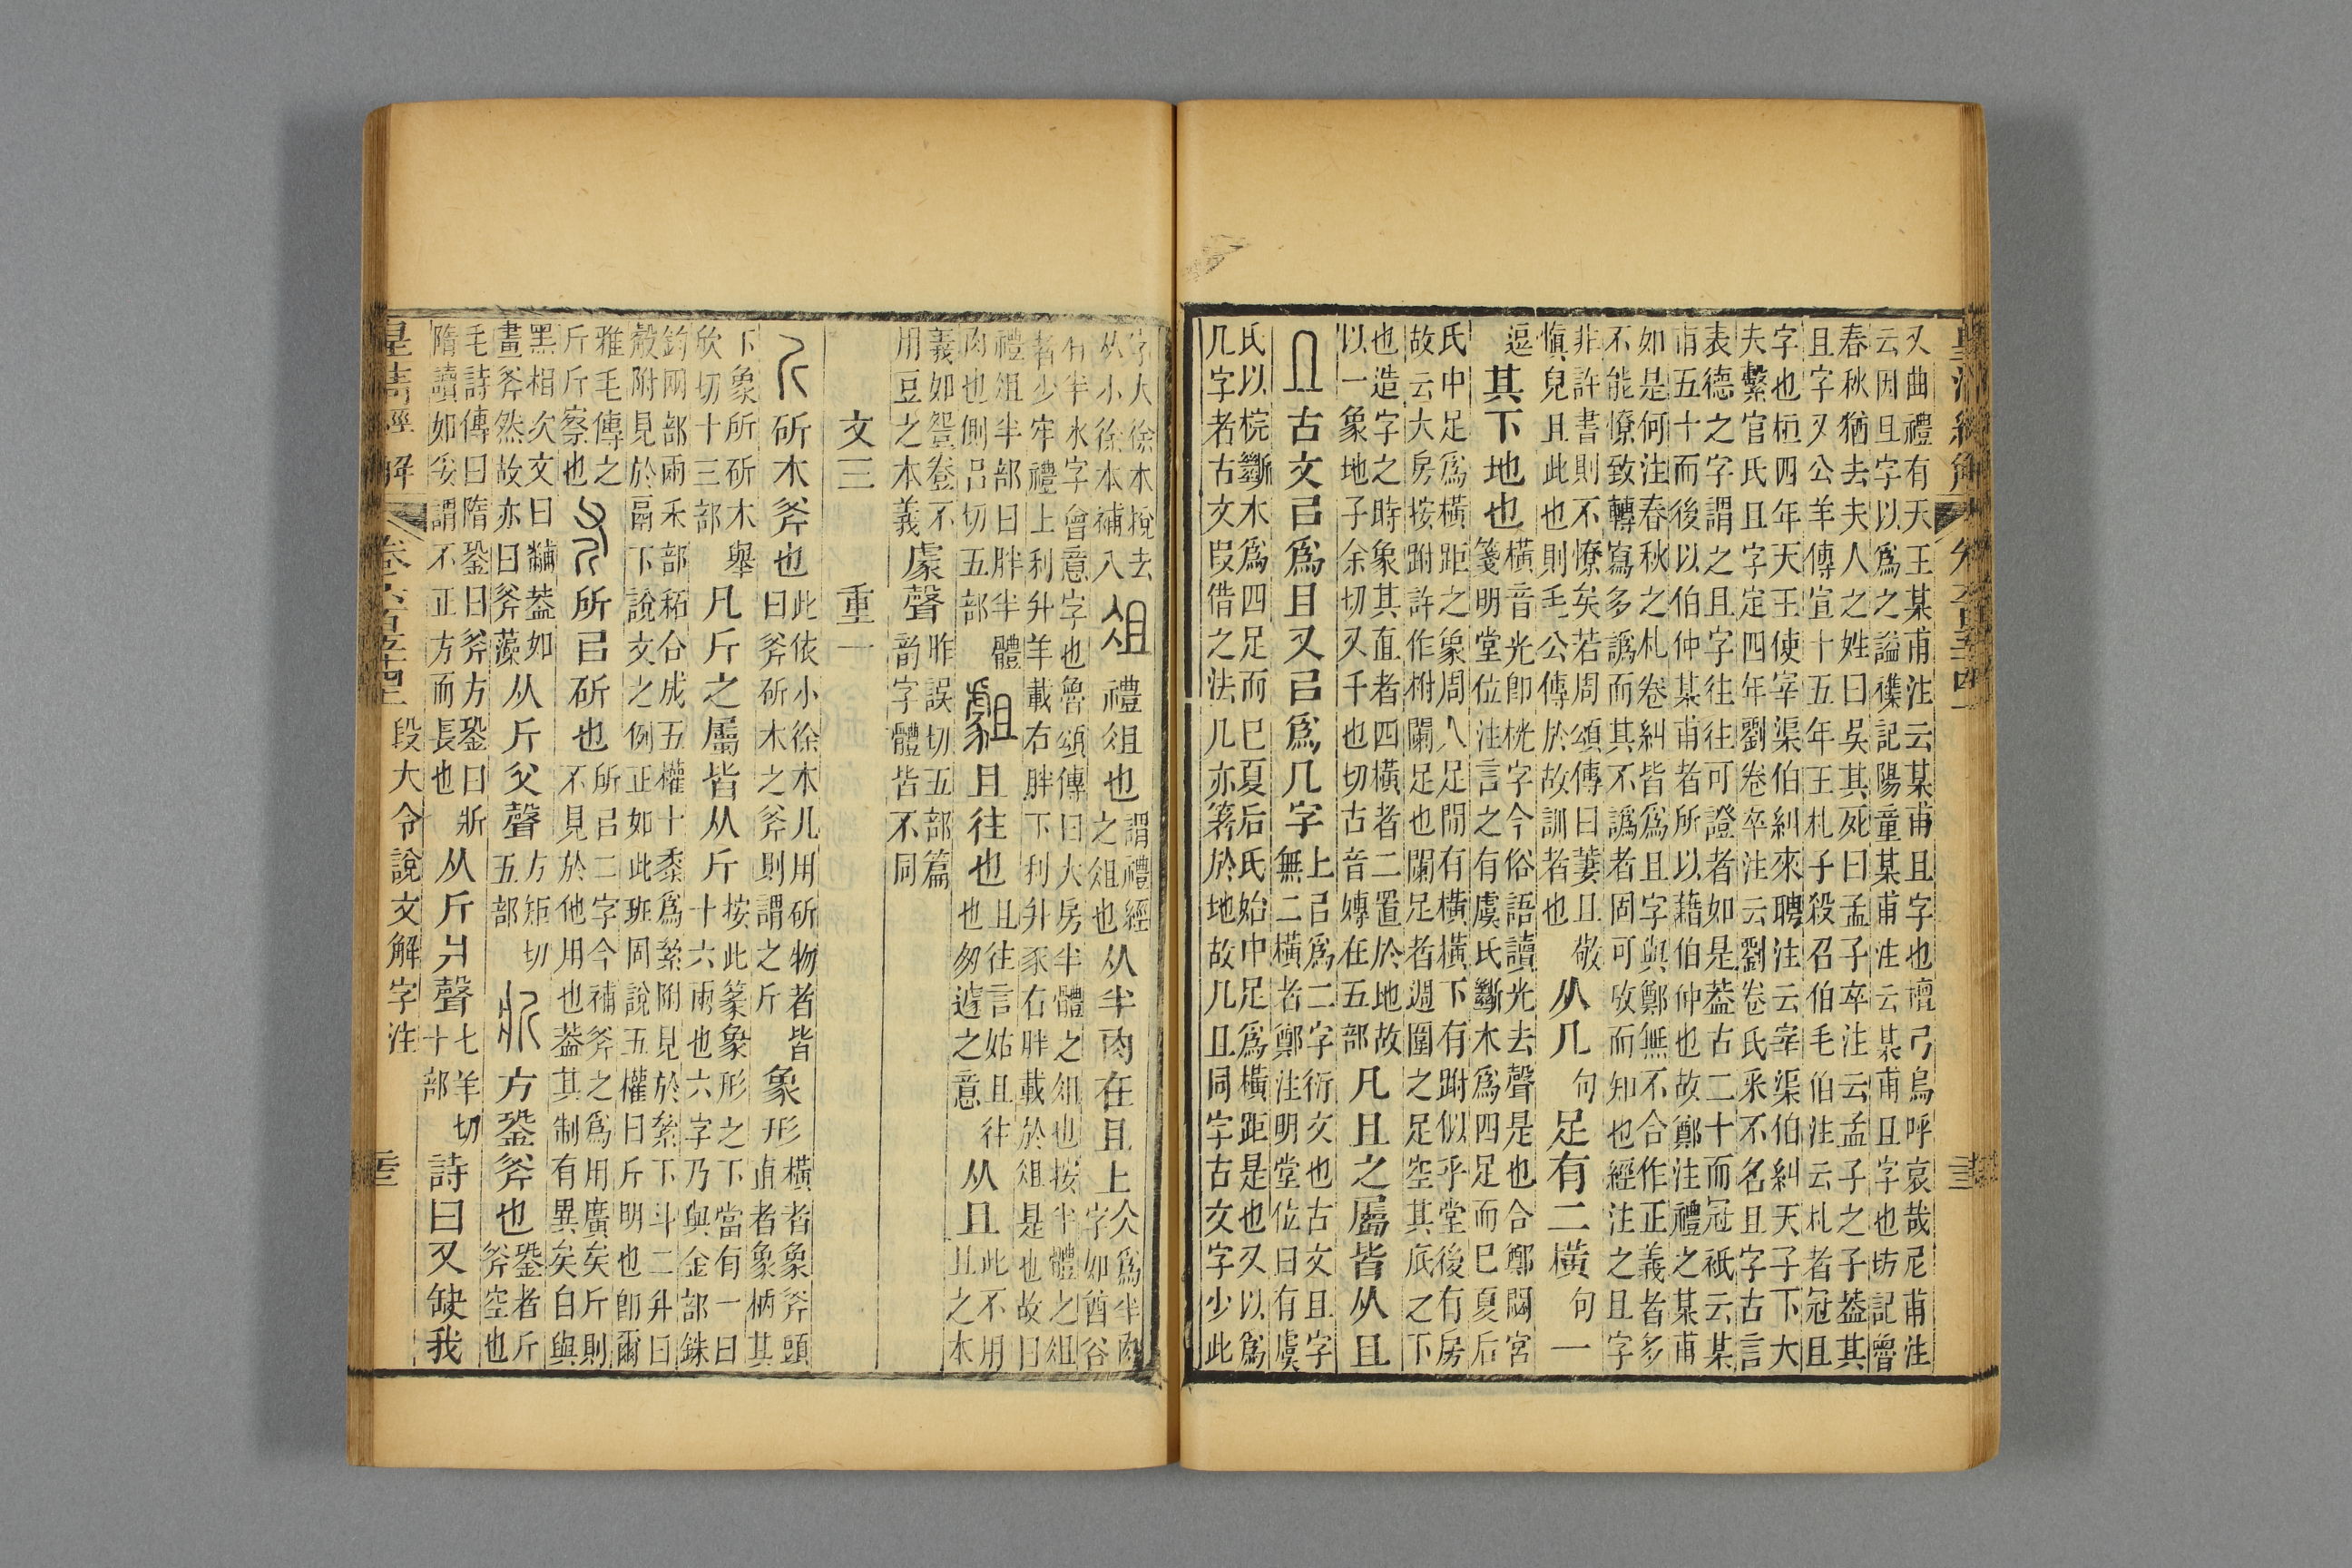 又曲禮有天王某甫注云某甫且字也檀弓烏呼哀哉尼甫注
云因且字以爲之謚襍記陽童某甫注云某甫且字也坊記曾
春秋猶去夫人之姓曰吳其死曰孟子卒注云孟子之子蓋其
且字又公羊傳宣十五年王札子殺召伯毛伯注云札者冠且
字也桓四年天王使宰渠伯糾來聘注云宰渠伯糾天子下大
夫繫官氏且字定四年劉卷卒注云劉卷氏釆不名且字古言
表德之字謂之且字往往可證者如是蓋古二十而冠衹云某
甫五十而後以伯仲某甫者所以藉伯仲也故鄭注禮之某甫
如是何注春秋之札卷糾皆爲且字與鄭無不合作正義者多
不能憭致轉寫多譌而其不譌者固可攷而知也經注之且字
非許書則不憭矣若周頌傳曰萋且敬
愼皃且此也則毛公傳於故訓者也
从几句足有二橫句一
逗其下地也
橫音光卽桄字今俗語讀光去聲是也合鄭閟宮
箋明堂位注言之有虞氏斷木爲四足而巳夏后
氏中足爲橫距之象周人足閒有橫橫下有跗似乎堂後有房
故云大房按跗許作柎闌足也闌足者週圍之足空其底之下
也造字之時象其直者四橫者二置於地故
以一象地子余切又千也切古音㛊在五部
凡且之屬皆从且
古文㠯爲且又㠯爲几字
上㠯爲二字衍文也古文且字
無二橫者鄭注明堂位曰有虞
氏以梡斷木爲四足而巳夏后氏始中足爲橫距是也又以爲
几字者古文叚借之法几亦箸於地故几且同字古文字少此
字大徐本挩去
从小徐本補入
俎禮俎也
謂禮經
之俎也
从半肉在且上
仌爲半肉
字如酋谷
有半水字會意字也魯頌傳曰大房半體之俎也按半體之俎
者少牢禮上利升羊載右胖下利升豕右胖載於俎是也故曰
禮俎半部曰胖半體
肉也側呂切五部
且往也
且往言姑且往
也匆遽之意
从且
此不用
且之本
義如䇺豋不
用豆之本義
豦聲
昨誤切五部篇
韵字體皆不同
文三 重一
斤斫木斧也
此依小徐本凡用斫物者皆
曰斧斫木之斧則謂之斤
象形
橫者象斧頭
直者象柄其
下象所斫木舉
欣切十三部
凡斤之屬皆从斤
按此篆象形之下當有一曰
十六兩也六字乃與金部銖
鈞网部兩禾部䄷合成五權十黍爲絫附見於絫下斗二升曰
㲉附見於鬲下說文之例正如此班固說五權曰斤明也卽爾
雅毛傳之
斤斤察也
斧所㠯斫也
所㠯二字今補斧之爲用廣矣斤則
不見於他用也蓋其制有異矣白與
黑相次文曰黼蓋如
畫斧然故亦曰斧藻
从斤父聲
方矩切
五部
斨方銎斧也
銎者斤
斧空也
毛詩傳曰隋銎曰斧方銎曰斨
隋讀如妥謂不正方而長也
从斤爿聲
七羊切
十部
詩曰又缺我
皇清經解 卷六百五十四上 段大令說文解字注